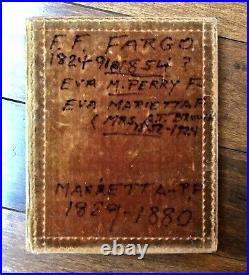 F. F. FARGO.
1824-91 1854 ?
EVA M. PERRY F-
EVA MARIETTA F
(MRS.
1852-1924
MARIETTA-P.F
1829-1880